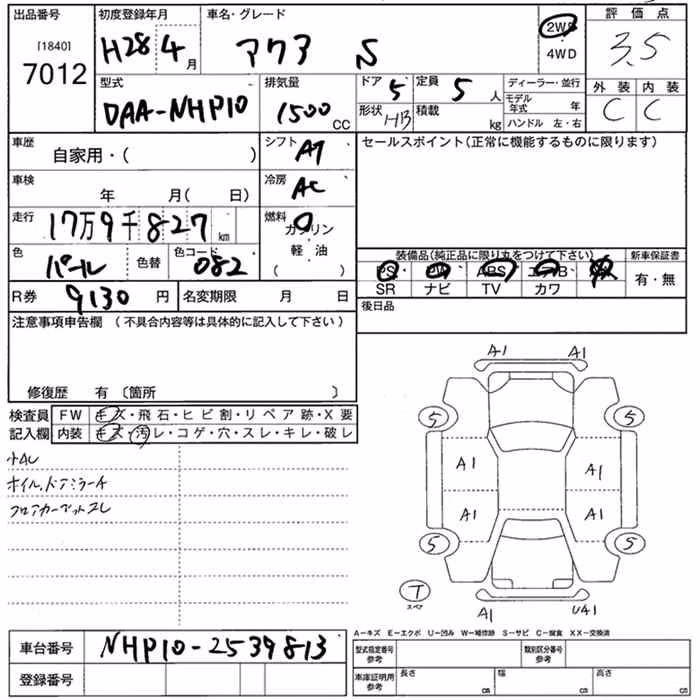 出品番号 初度登録年月 車名・グレード 評価点
[1840] 7012 H28 4月 アクア S 2WD 4WD 3.5
型式 排気量 ドア 5 定員 5人 ディーラー・並行 外装 内装
DAA-NHP10 1500cc 形状 HB 積載 kg モデル年式 年 C C
ハンドル 左・右
車歴 自家用・( ) シフト AT セールスポイント(正常に機能するものに限ります)
車検 年 月( 日) 冷房 AC
走行 17万9千827km 燃料 ガソリン
軽・油
( )
色 パール 色替 色コード 082 装備品(純正品に限り丸をつけて下さい) 新車保証書
PS PW ABS エアB 有・無
SR ナビ TV カワ
R券 9130円 名変期限 月 日 後日品
注意事項申告欄 (不具合内容等は具体的に記入して下さい)
修復歴 有 〔箇所 〕
検査員 FW キズ・飛石・ヒビ割・リペア跡・X要
記入欄 内装 キズ・汚レ・コゲ・穴・スレ・キレ・破レ
小AU
ホイル、ドアミラーA
フロアカーペットスレ
A1 A1
5 5
A1 A1
A1 A1
5 5
T
スペア
A1 U41
A-キズ E-エクボ U-凹み W-補修跡 S-サビ C-腐食 XX-交換済
車台番号 NHP10-2539813 型式指定番号 参考 類別区分番号 参考
登録番号 車庫証明用 参考 長さ cm 幅 cm 高さ cm